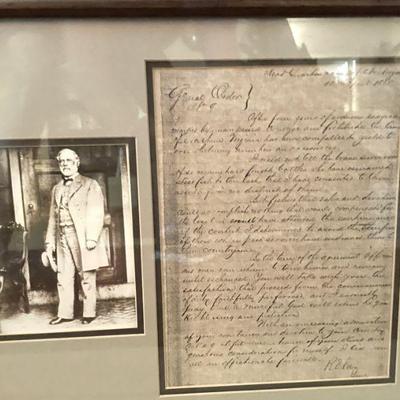 Head Quarters Army of N. Virginia
10th April 1865
General Orders }
No 9
After four years of arduous service
marked by unsurpassed courage and fortitude the Army
of Northern Virginia has been compelled to yield to
overwhelming numbers and resources
I need not tell the brave survivors
of so many hard fought battles who have remained
steadfast to the last that I have consented to this
result from no distrust of them.
But feeling that valor and devotion
could accomplish nothing that would compensate for
the loss that would have attended the continuance
of the contest, I determined to avoid the sacrifice
of those whose past services have endeared them to
their countrymen.
By the terms of the agreement officers
and men can return to their homes and remain
until exchanged. You will take with you the
satisfaction that proceeds from the consciousness
of duty faithfully performed and I earnestly
pray that a merciful God will extend to you
His blessing and protection.
With an increasing admiration
of your constancy and devotion to your Country
and a grateful remembrance of your kind and
generous consideration for myself I bid you
all an affectionate farewell.
R E Lee
Genl